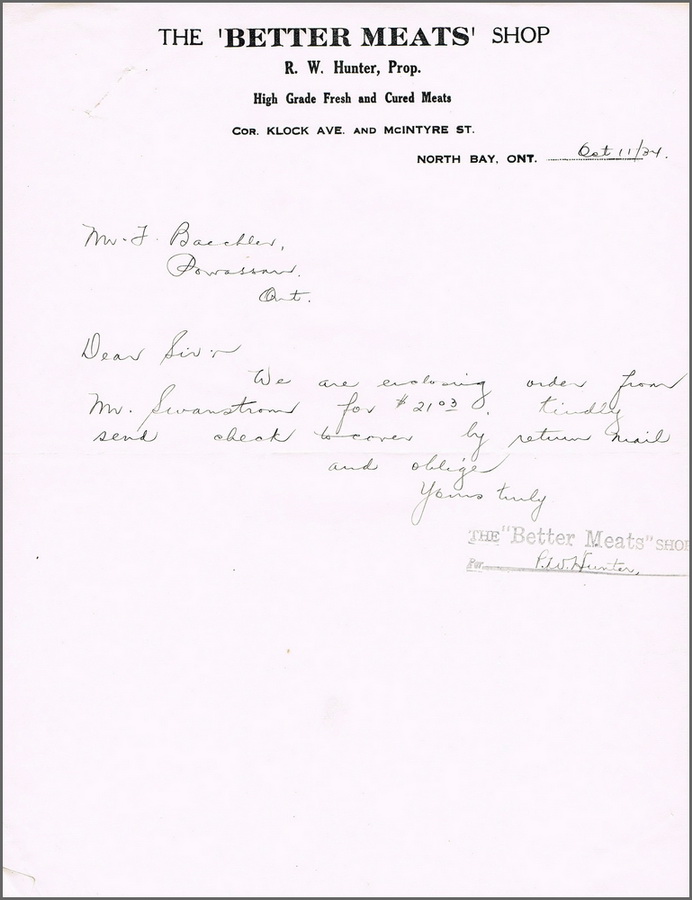 THE 'BETTER MEATS' SHOP
R. W. Hunter, Prop.
High Grade Fresh and Cured Meats
COR. KLOCK AVE. AND MCINTYRE ST.
NORTH BAY, ONT. Oct 11/34.
Mr. F. Baechler,
Powassan.
Ont.
Dear Sir:
We are enclosing order from
Mr. Swanstrom for $21 03. Kindly
send check to cover by return mail
and oblige
Yours truly
THE "Better Meats" SHOP
Per R.W. Hunter,